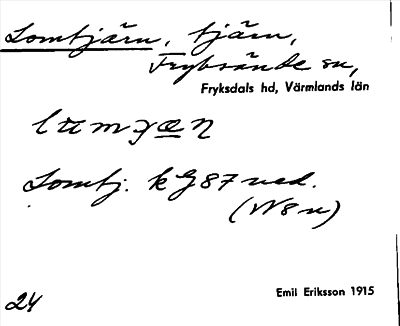 Lomtjärn, tjärn,
Fryksände sn,
Fryksdals hd, Värmlands län
Lomtj. k G 87 ned.
(N 8 n)
24
Emil Eriksson 1915